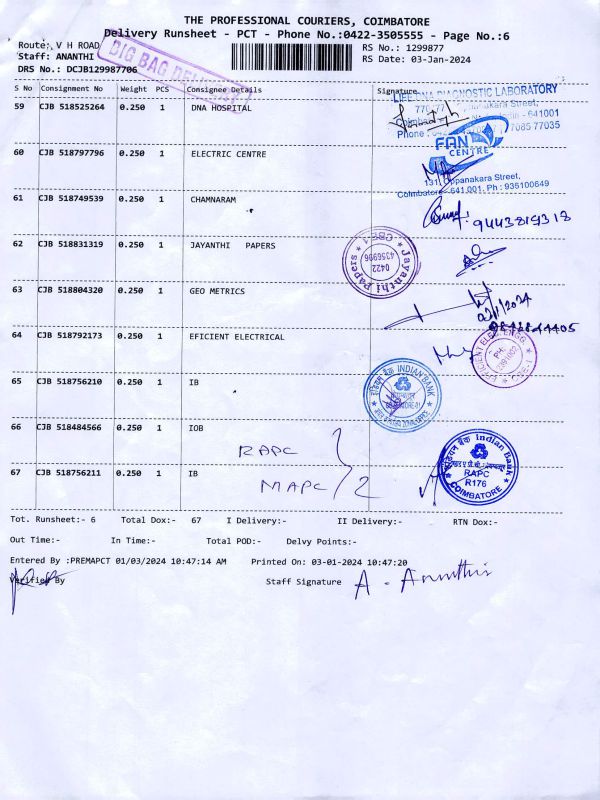 THE PROFESSIONAL COURIERS, COIMBATORE
Delivery Runsheet - PCT - Phone No.:0422-3505555 - Page No.:6
Route: V H ROAD
RS No.: 1299877
Staff: ANANTHI
RS Date: 03-Jan-2024
DRS No.: DCJB129987706
BIG BAG DELIVERY
S No Consignment No Weight PCS Consignee Details Signature
LIFE DNA DIAGNOSTIC LABORATORY
59 CJB 518525264 0.250 1 DNA HOSPITAL
641001
Phone :
77035
FAN
CENTRE
60 CJB 518797796 0.250 1 ELECTRIC CENTRE
131, Oppanakara Street,
Coimbatore - 641 001. Ph : 936100649
61 CJB 518749539 0.250 1 CHAMNARAM
9443819318
62 CJB 518831319 0.250 1 JAYANTHI PAPERS
Jayanthi Papers
CBE-1
0422
4356996
63 CJB 518804320 0.250 1 GEO METRICS
64 CJB 518792173 0.250 1 EFICIENT ELECTRICAL
65 CJB 518756210 0.250 1 IB
इंडियन बैंक INDIAN BANK
66 CJB 518484566 0.250 1 IOB
RAPC
67 CJB 518756211 0.250 1 IB
MAPC
2
इंडियन बैंक Indian Bank
RAPC
R176
COIMBATORE
Tot. Runsheet:- 6 Total Dox:- 67 I Delivery:- II Delivery:- RTN Dox:-
Out Time:- In Time:- Total POD:- Delvy Points:-
Entered By :PREMAPCT 01/03/2024 10:47:14 AM Printed On: 03-01-2024 10:47:20
Verified By
Staff Signature
A. Ananthi